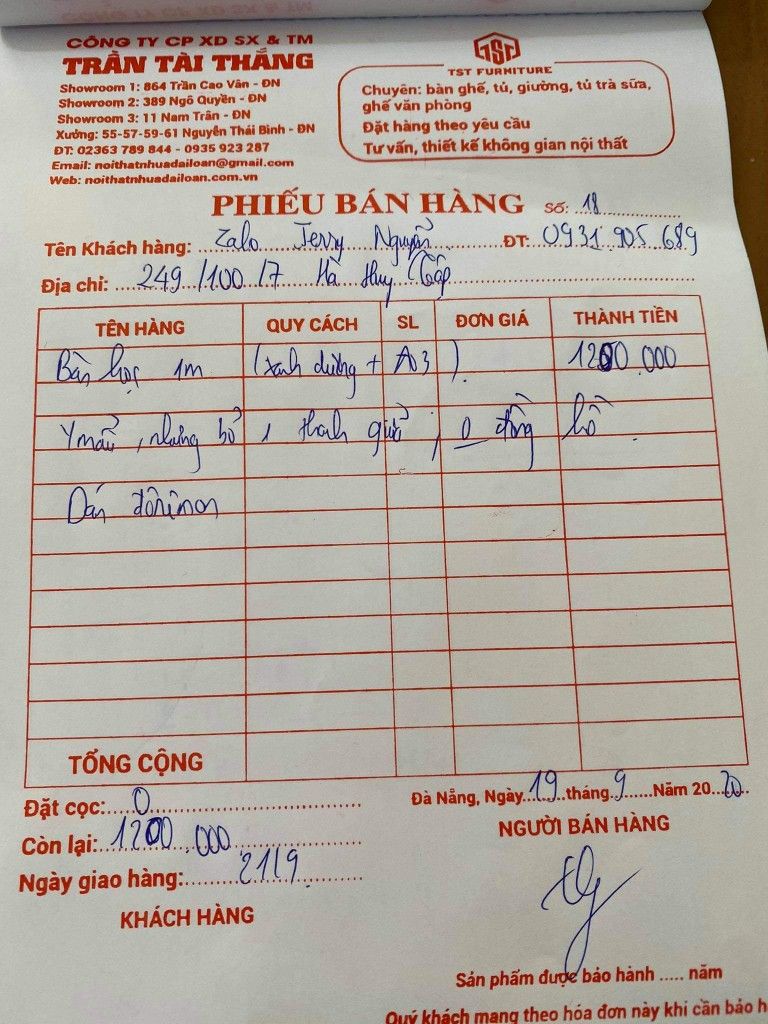 CÔNG TY CP XD SX & TM
TRẦN TÀI THẮNG
Showroom 1: 864 Trần Cao Vân - ĐN
Showroom 2: 389 Ngô Quyền - ĐN
Showroom 3: 11 Nam Trân - ĐN
Xưởng: 55-57-59-61 Nguyễn Thái Bình - ĐN
ĐT: 02363 789 844 - 0935 923 287
Email: noithatnhuadailoan@gmail.com
Web: noithatnhuadailoan.com.vn
TST
TST FURNITURE
Chuyên: bàn ghế, tủ, giường, tủ trà sữa,
ghế văn phòng
Đặt hàng theo yêu cầu
Tư vấn, thiết kế không gian nội thất
PHIẾU BÁN HÀNG Số: 18
Tên Khách hàng: Zalo Jerry Nguyễn ĐT: 0931.905.689
Địa chỉ: 249/100/7 Hà Huy Tập
TÊN HÀNG QUY CÁCH SL ĐƠN GIÁ THÀNH TIỀN
Bàn học 1m (xanh dương + A03). 1200.000
Y mẫu, nhưng bỏ 1 thanh giữa, 0 đồng hồ.
Dán đôrimon
TỔNG CỘNG
Đặt cọc: 0
Đà Nẵng, Ngày 19 tháng 9 Năm 2020
Còn lại: 1200.000
NGƯỜI BÁN HÀNG
Ngày giao hàng: 21/9
KHÁCH HÀNG
Sản phẩm được bảo hành ..... năm
Quý khách mang theo hóa đơn này khi cần bảo h